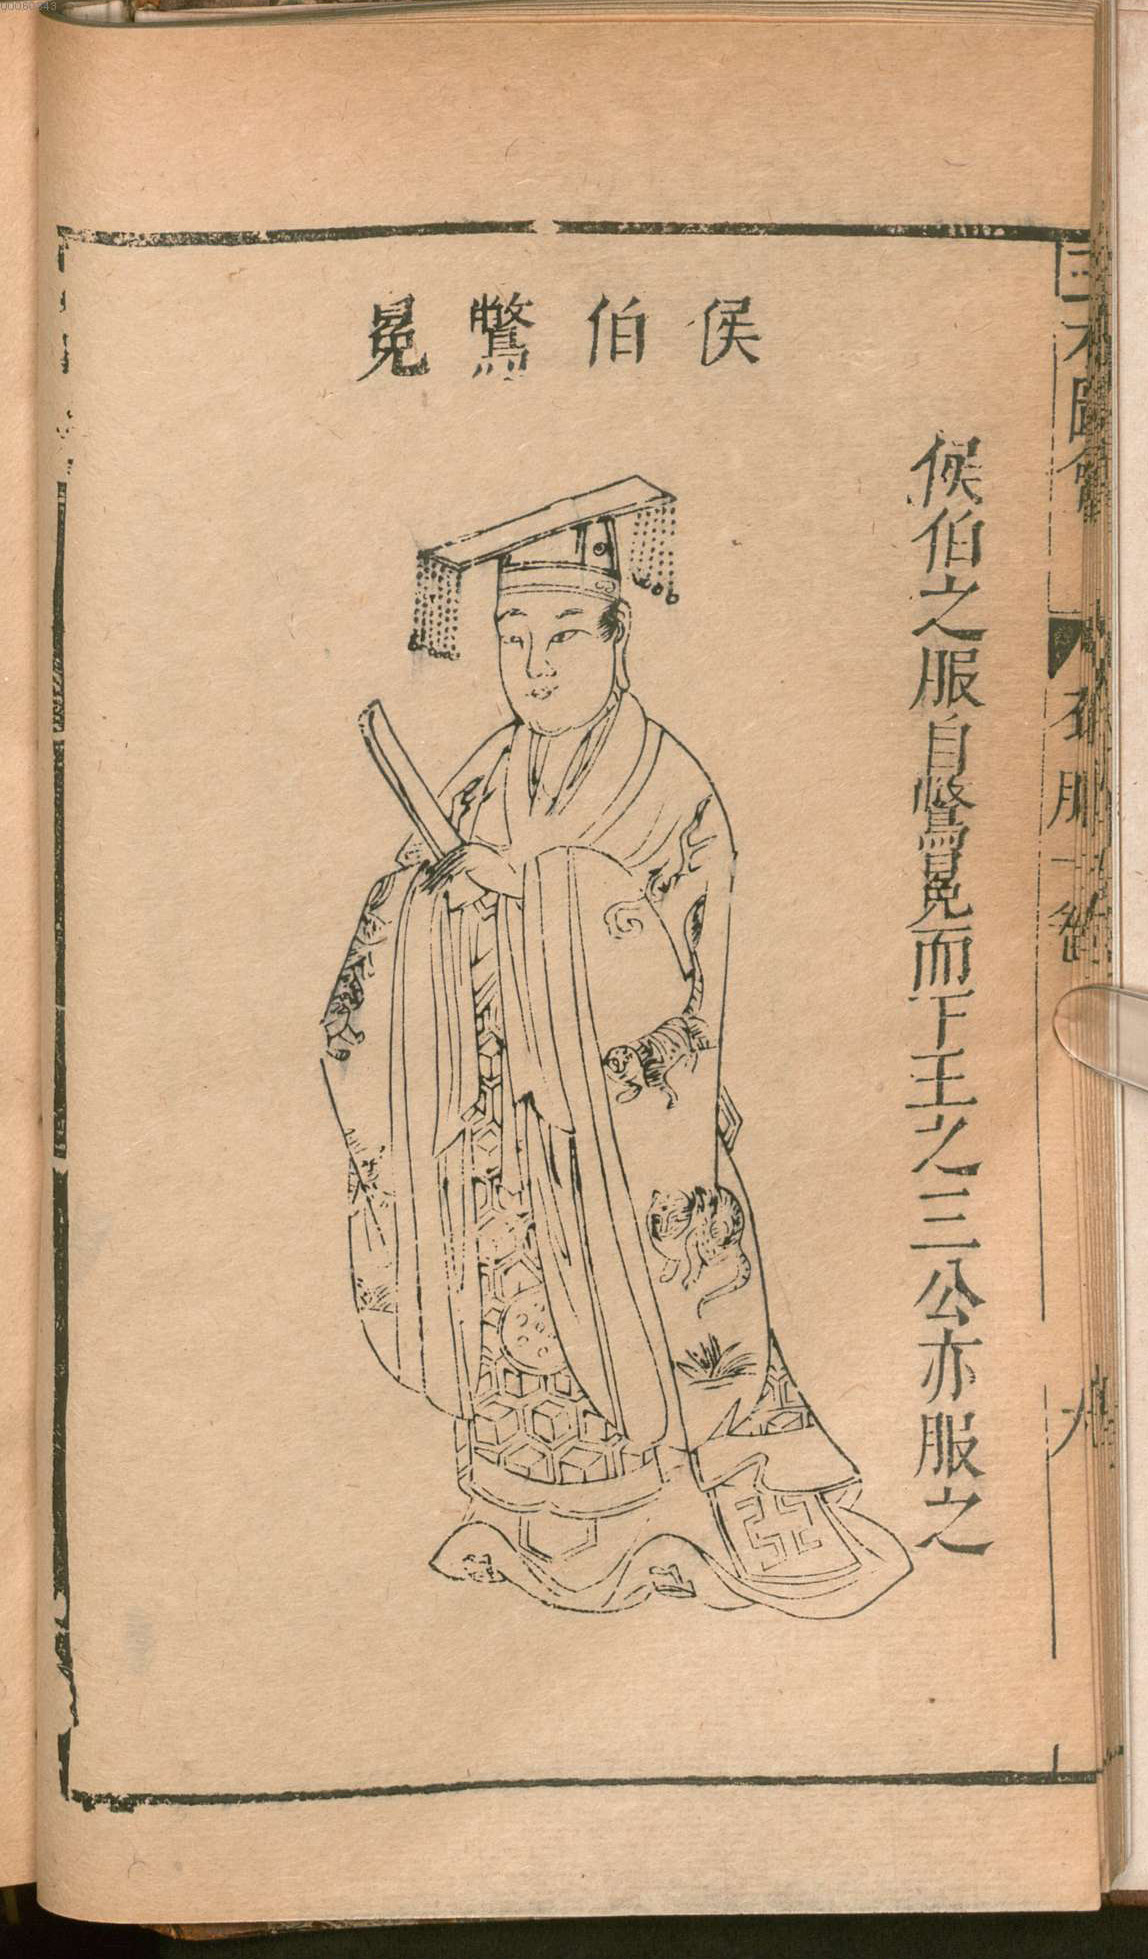 侯伯鷩冕
候伯之服自鷩冕而下王之三公亦服之
三才圖會
衣服一卷